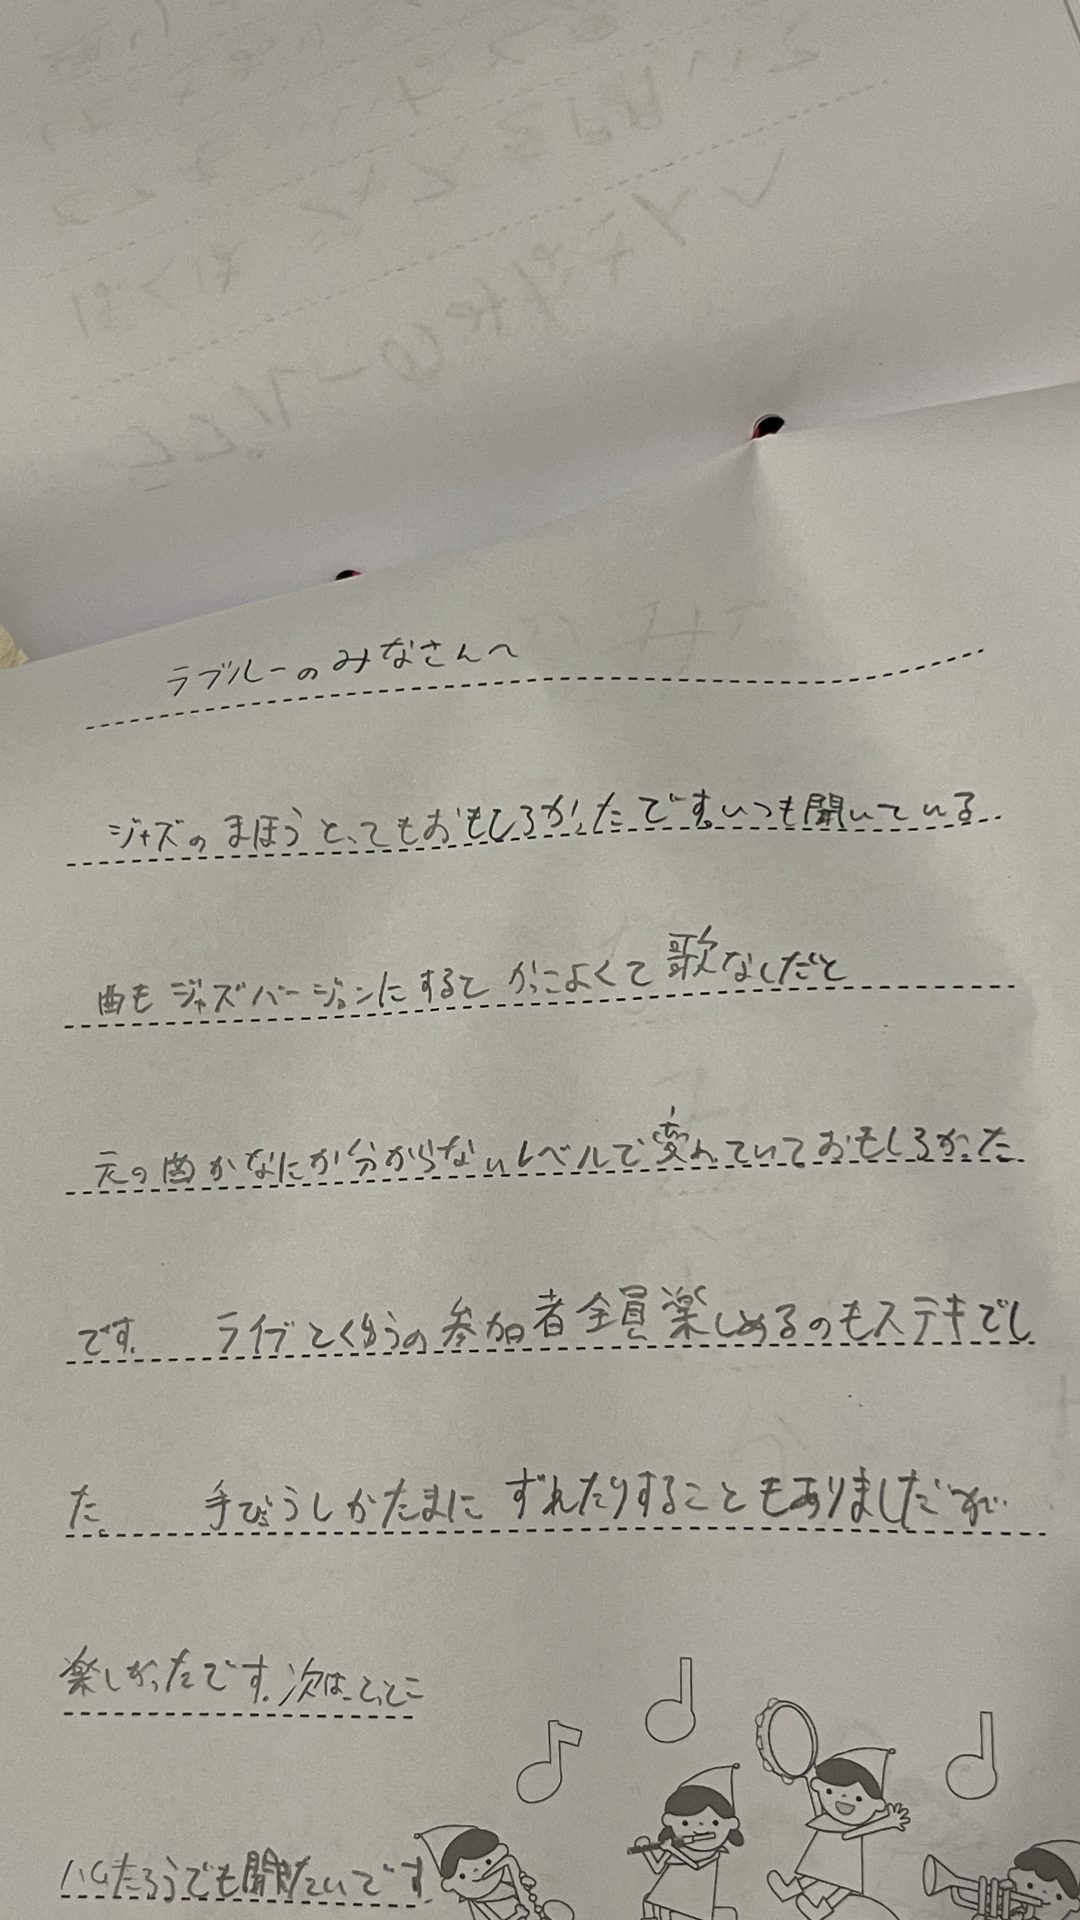 ラブルーのみなさんへ
ジャズのまほうとってもおもしろかったです。いつも聞いている
曲もジャズバージョンにするとかっこよくて歌なしだと
元の曲がなにか分からないレベルで変わっていておもしろかった
です。 ライブとくゆうの参加者全員楽しめるのもステキでし
た。 手びょうしがたまにずれたりすることもありましたが
楽しかったです。次は、とっとこ
ハムたろうでも聞きたいです。